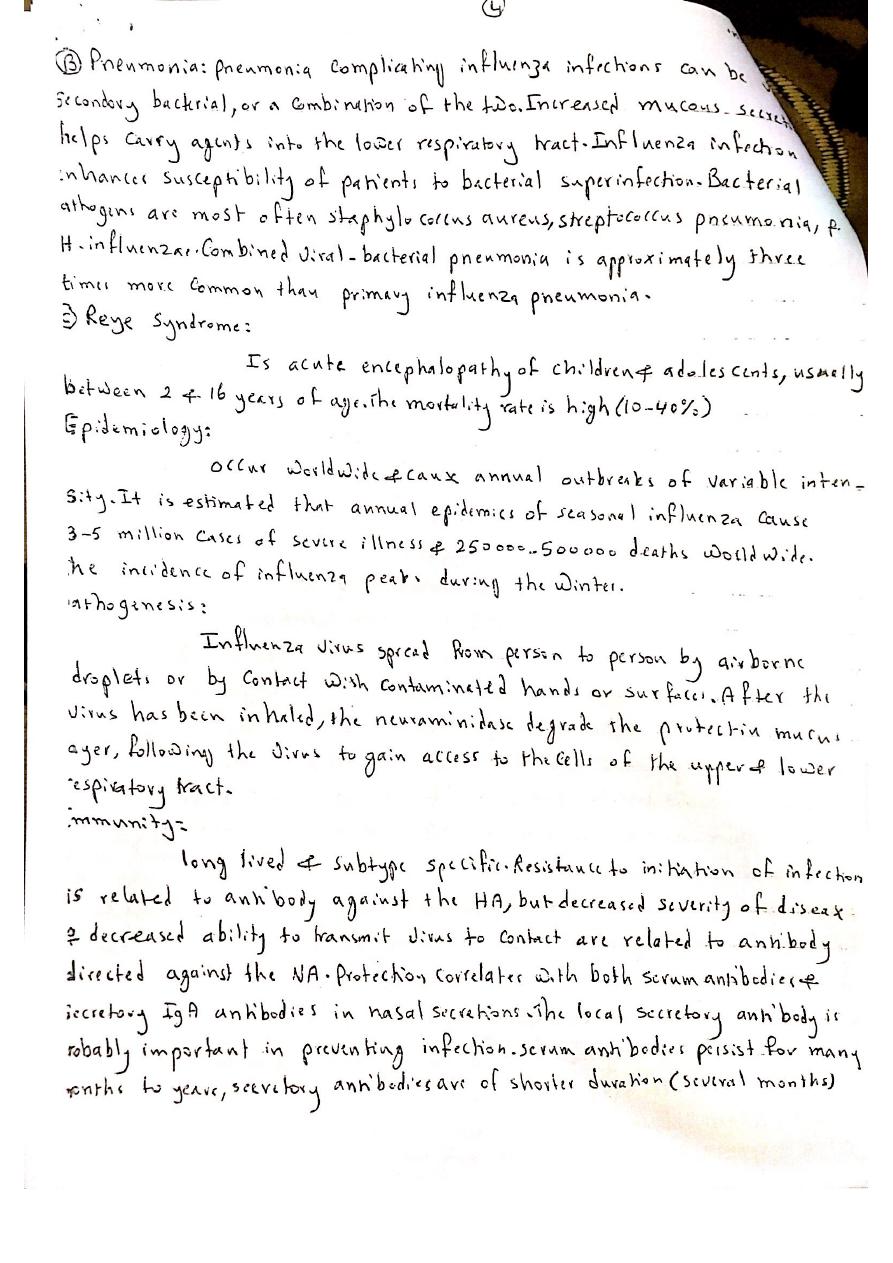 4
B Pneumonia: pneumonia complicating influenza infections can be
secondory bacterial, or a combination of the two. Increased mucous secret
helps carry agents into the lower respiratory tract. Influenza infection
nhances susceptibility of patients to bacterial superinfection. Bacterial
athogens are most often staphylococcus aureus, streptococcus pneumonia, &
H. influenzae. Combined viral-bacterial pneumonia is approximately three
times more common than primary influenza pneumonia.
Reye Syndrome:
Is acute encephalopathy of children & adolescents, usually
between 2 & 16 years of age. The mortality rate is high (10-40%)
Epidemiology:
occur worldwide & cause annual outbreaks of variable inten-
sity. It is estimated that annual epidemics of seasonal influenza cause
3-5 million cases of severe illness & 250000..500000 deaths worldwide.
he incidence of influenza peaks during the winter.
athogenesis:
Influenza virus spread from person to person by airborne
droplets or by contact with contaminated hands or surfaces. After the
virus has been inhaled, the neuraminidase degrade the protectin mucus
ayer, following the virus to gain access to the cells of the upper & lower
respiratory tract.
immunity:
long lived & subtype specific. Resistance to initiation of infection
is related to antibody against the HA, but decreased severity of disease
& decreased ability to transmit virus to contact are related to antibody
directed against the NA. Protection correlates with both serum antibodies &
secretory IgA antibodies in nasal secretions. The local secretory antibody is
robably important in preventing infection. serum antibodies persist for many
onths to years, secretory antibodies are of shorter duration (several months)